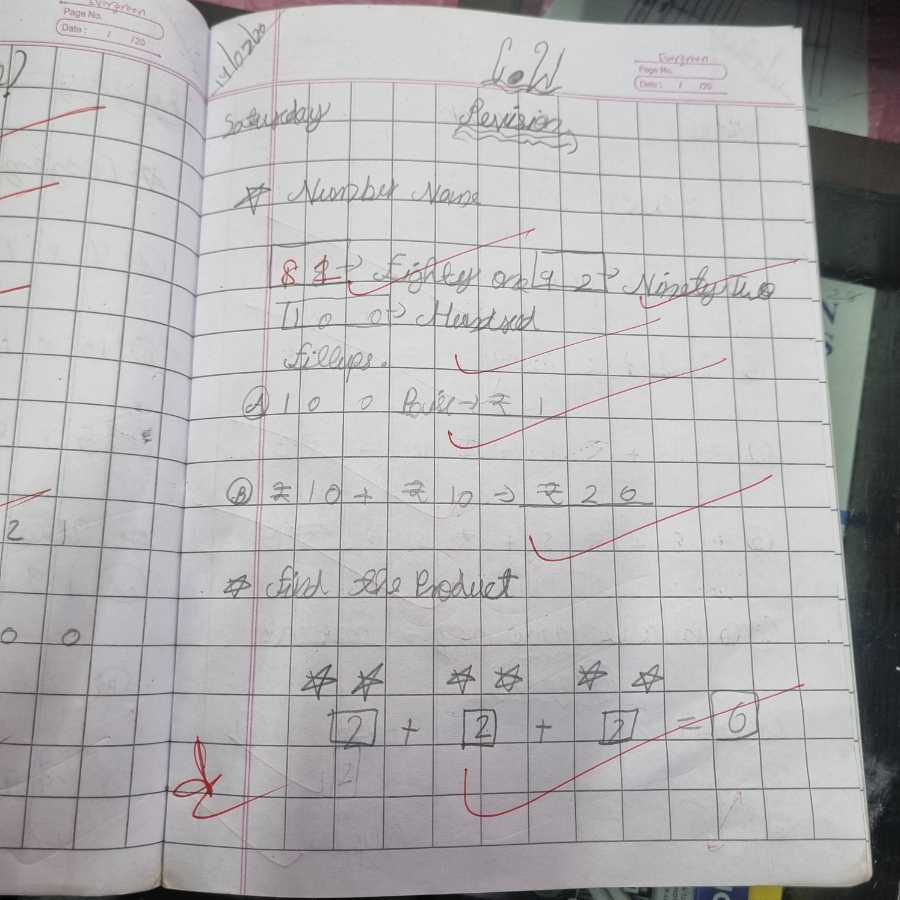 Evergreen
Page No.
Date : / /20
2 1
0 0
C.W
Evergreen
Page No.
Date : / /20
Saturday Revision
☆ Number Name
81 → Eighty one 92 → Ninety Two
100 → Hundred
fillups.
Ⓐ 100 Paise → ₹ 1
Ⓑ ₹ 10 + ₹ 10 → ₹ 20
☆ find the Product
☆ ☆ ☆ ☆ ☆ ☆
2 + 2 + 2 = 6